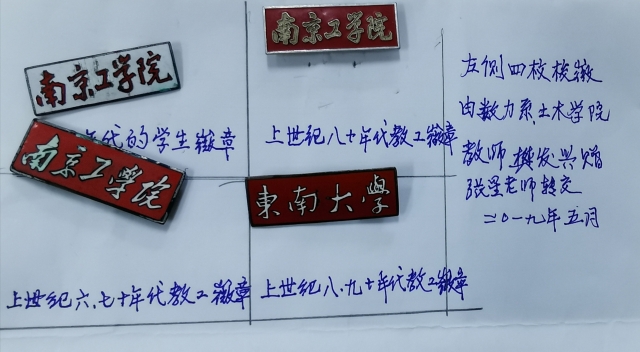 南京工学院
年代的学生徽章
南京工学院
上世纪八十年代教工徽章
南京工学院
上世纪六、七十年代教工徽章
東南大學
上世纪八、九十年代教工徽章
左侧四枚校徽
由数力系、土木学院
教师 樊发兴赠
张星老师转交
二〇一九年五月